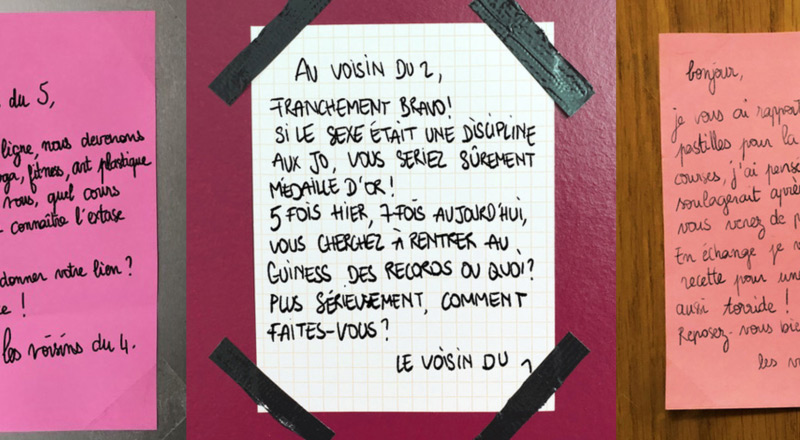 du 5,
ligne, nous devenons
yoga, fitness, art plastique
vous, quel cours
connaître l'extase
donner votre lien ?
les voisins du 4.
AU VOISIN DU 2,
FRANCHEMENT BRAVO!
SI LE SEXE ÉTAIT UNE DISCIPLINE
AUX JO, VOUS SERIEZ SÛREMENT
MÉDAILLE D'OR !
5 FOIS HIER, 7 FOIS AUJOURD'HUI,
VOUS CHERCHEZ À RENTRER AU
GUINESS DES RECORDS OU QUOI ?
PLUS SÉRIEUSEMENT, COMMENT
FAITES-VOUS ?
LE VOISIN DU 1
bonjour,
je vous ai rapport
pastilles pour la
courses, j'ai pensé
soulagerait après
vous venez de
En échange je
recette pour une
aussi torride !
Reposez-vous bien
les